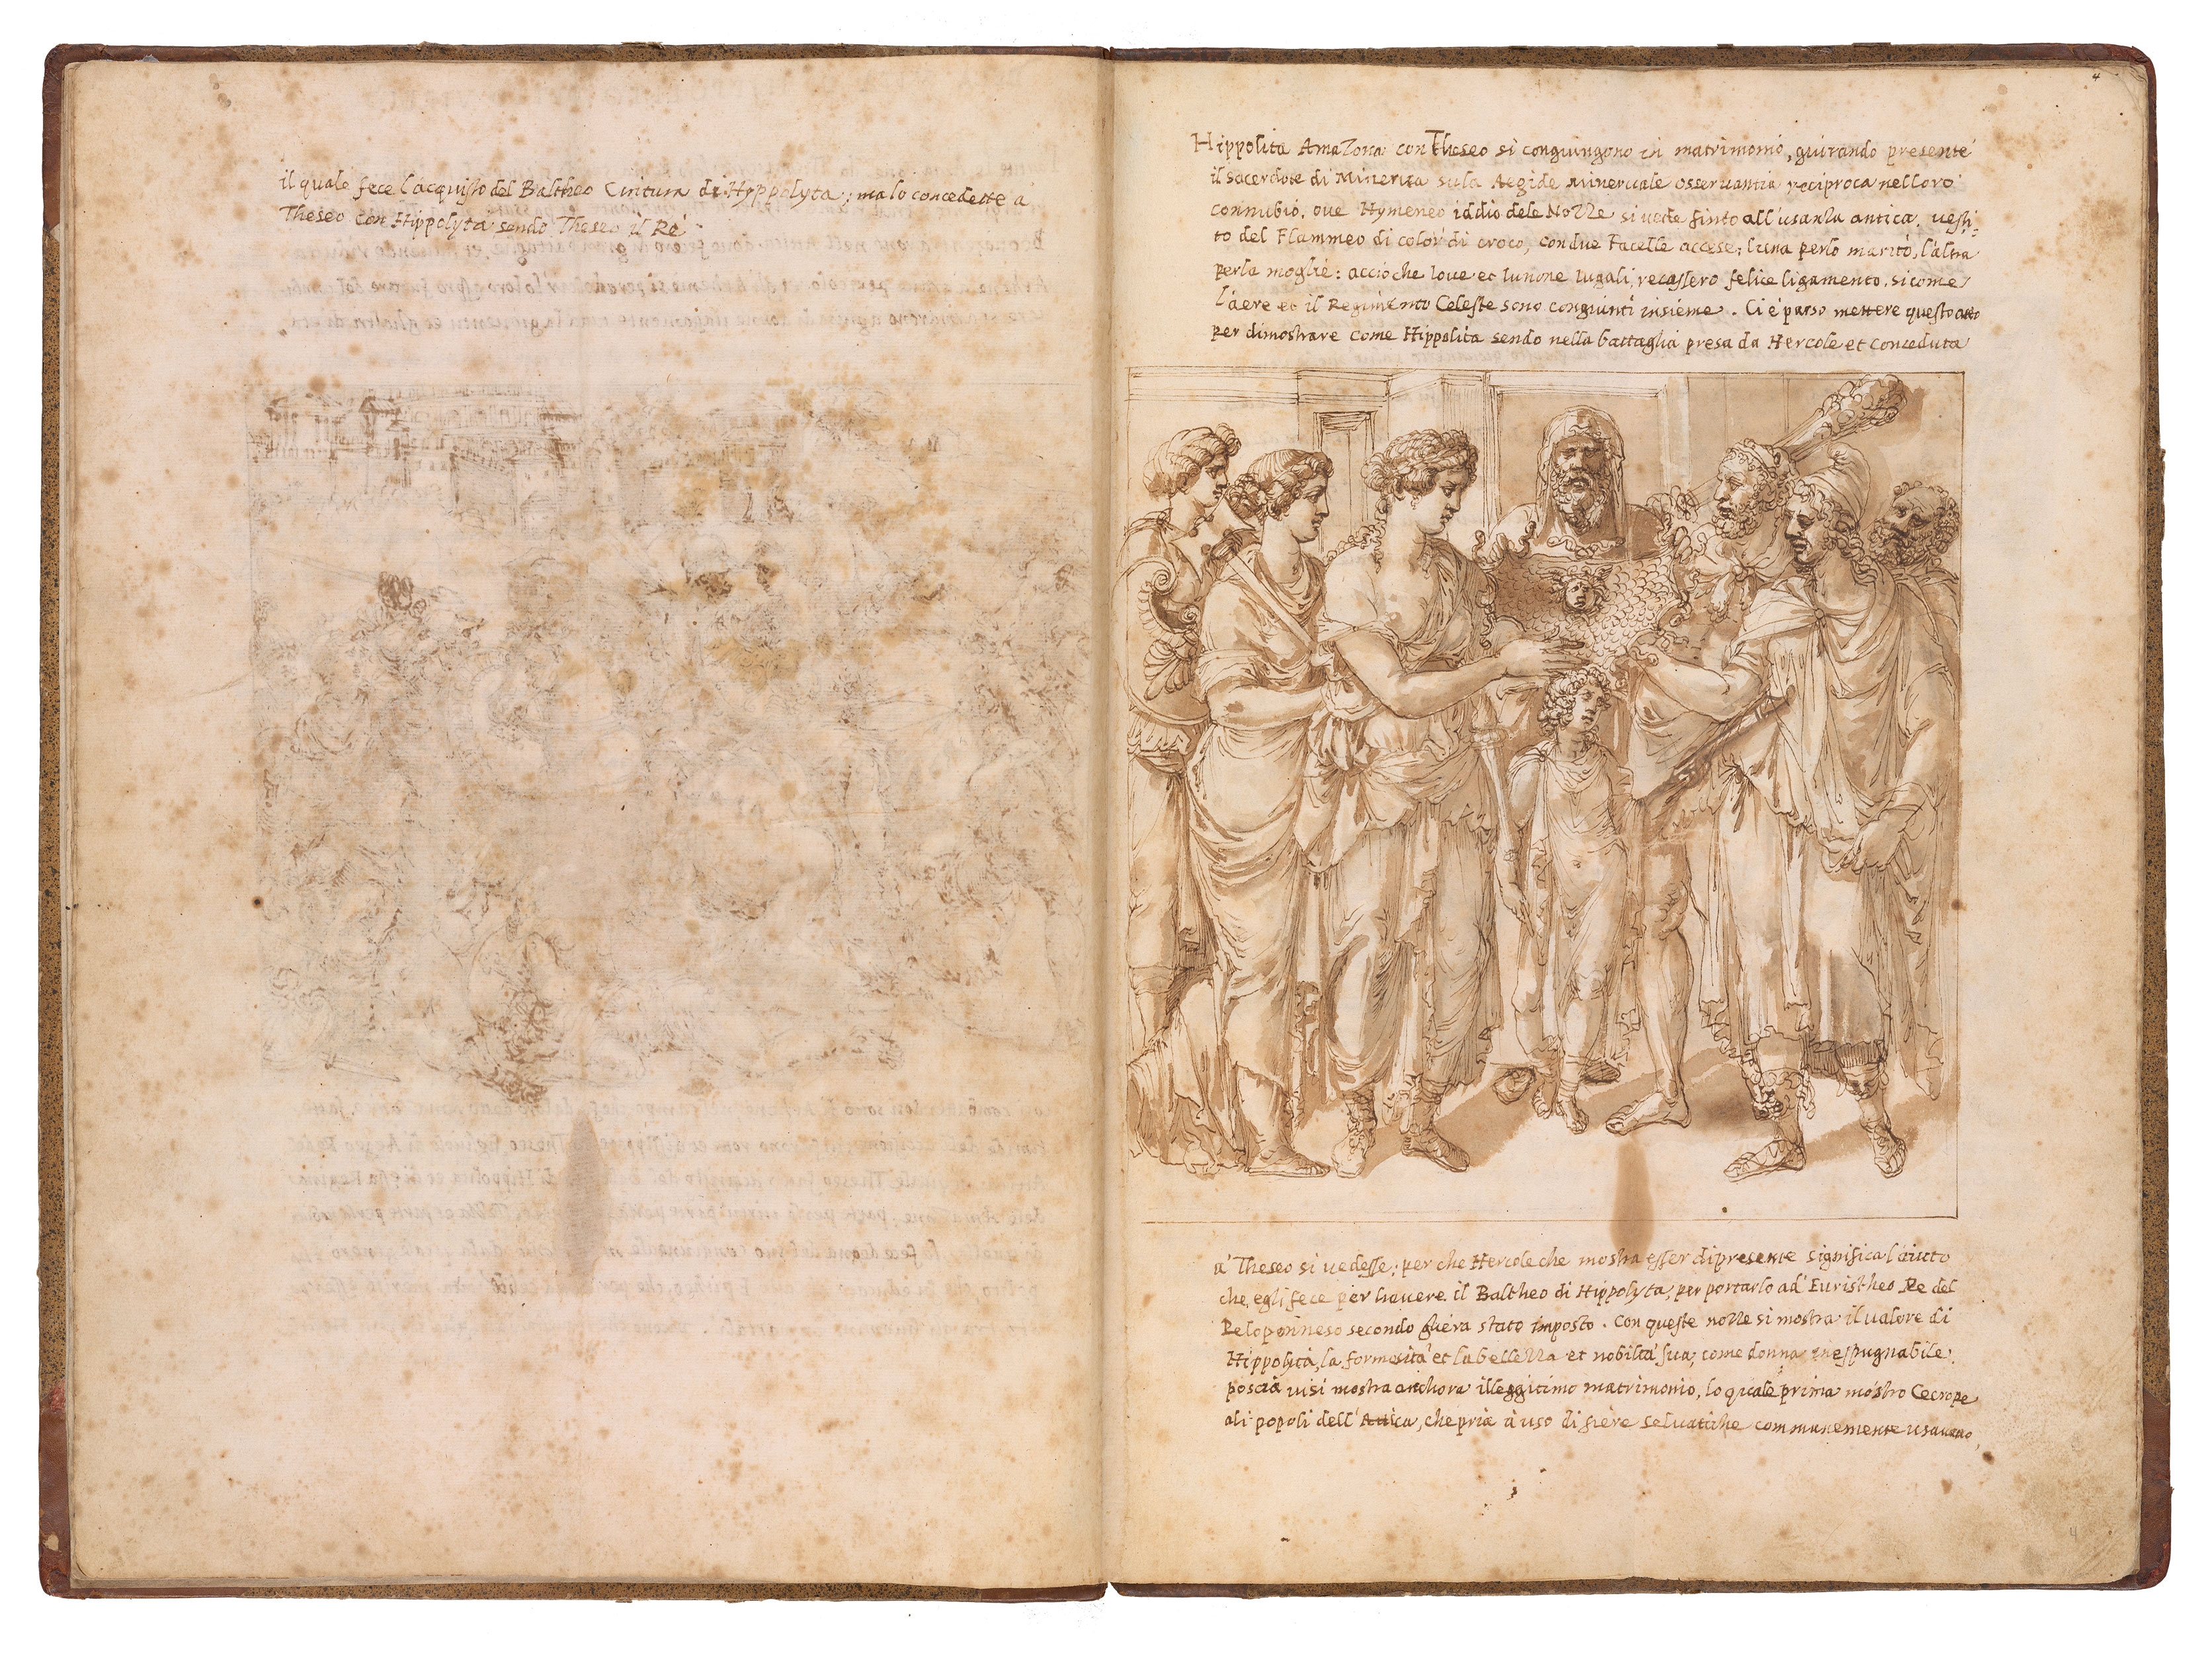 il quale fece l'acquisto del Baltheo Cintura di Hyppolyta; ma lo concedette à
Theseo con Hippolyta sendo Theseo il Rè
4
Hippolita Amazona con Theseo si congiungono in matrimonio, guirando presente
il sacerdote di Minerva sula Aegide Minervale osservantia reciproca nelloro
connubio, ove Hymeneo iddio dele Nozze si vede finto all'usanza antica, vesti-
to del Flammeo di color di croco, con due Facelle accese; l'una perlo marito, l'altra
perla moglie: acciò che Iove et Iunone Iugali, recassero felice ligamento, si come
l'aere et il Regimento Celeste sono congiunti insieme. Ci è parso mettere questo atto
per dimostrare come Hippolita sendo nella battaglia presa da Hercole et conceduta
à Theseo si vedesse; per che Hercole che mostra esser di presente significa l'aiuto
che egli fece per havere il Baltheo di Hippolyta, per portarlo ad Euristheo Re del
Peloponneso secondo gliera stato imposto. Con queste nozze si mostra il valore di
Hippolyta, la formosità et la bellezza et nobiltà sua, come donna inespugnabile;
poscia visi mostra anchora il leggitimo matrimonio, lo quale prima mostrò Cecrope
ali popoli dell'Attica, che pria à uso di fiere selvatiche communemente usavano,
4